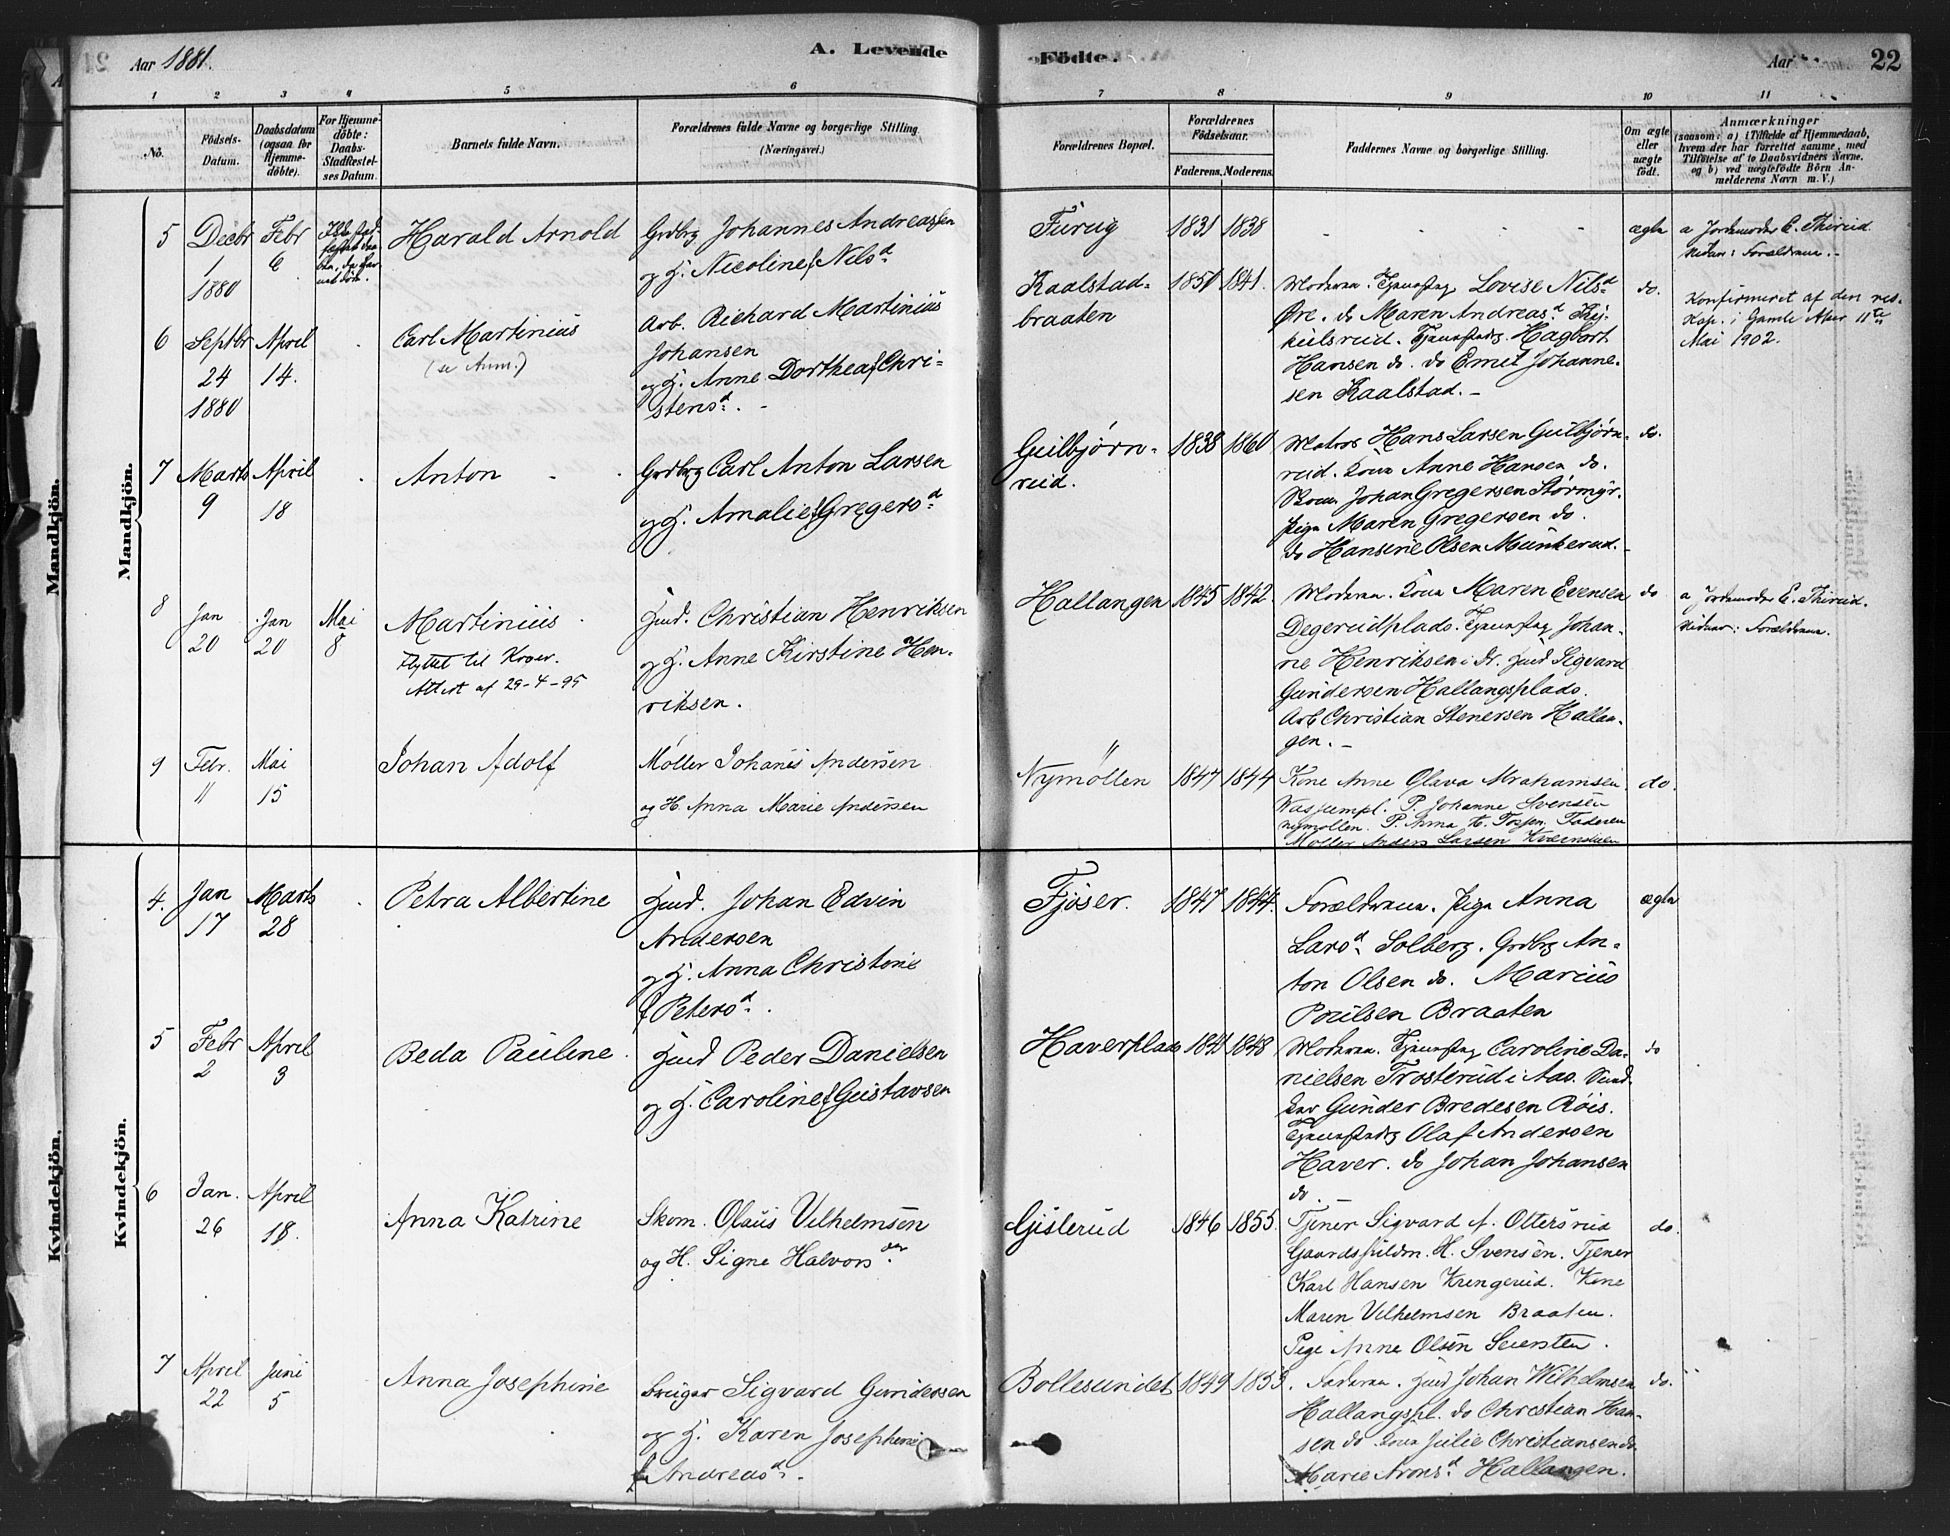 Aar 1881.
A. Levende
1 2 3 4 5 6
No.
Födsels-
Datum.
Daabsdatum
(ogsaa for
Hjemme-
döbte).
For Hjemme-
döbte:
Daabs-
Stadfæstel-
ses Datum.
Barnets fulde Navn.
Forældrenes fulde Navne og borgerlige Stilling.
(Næringsvei.)
Mandkjön.
Mandkjön.
5 Decbr Febr Harald Arnold Grdbrg Johannes Andreassen
1 6 og H. Nicoline f Nilsd.
1880
6 Septbr April Carl Martinius Arb. Richard Martinius
24 14. (se Anm.) Johansen
1880 og H. Anne Dorthea f Chri-
stensd. -
7 Marts April Anton Grdbrg Carl Anton Larsen
9 18 og H. Amalie f Gregersd.
8 Jan Jan Mai Martinius. Husd. Christian Henriksen
20 20 8 Flyttet til Kroer. og H. Anne Kirstine Hen-
Attest af 29-4-95 riksen.
9 Febr. Mai Johan Adolf Møller Johanes Andersen
11 15 og H. Anna Marie Andersen
Kvindekjön.
Kvindekjön.
4. Jan Marts Petra Albertine Husd. Johan Edvin
17 28 Andersen
og H. Anna Christine
f Petersd.
5 Febr April Beda Pauline. Husd Peder Danielsen
2 3 og H. Caroline f Gustavsen
6 Jan. April Anna Katrine Skom. Olaus Vilhelmsen
26 18. og H. Signe Halvorsder.
7 April Juni Anna Josephine Bruger Sigvard Gundersen
22 5 og H. Karen Josephine
f Andreasd.
Födte.
Aar
22
7 8 9 10 11
Forældrenes Bopæl.
Forældrenes
Födselsaar.
Faderens. Moderens.
Faddernes Navne og borgerlige Stilling.
Om ægte
eller
uægte
födt.
Anmærkninger
(saasom: a) i Tilfælde af Hjemmedaab,
hvem der har forrettet samme, med
Tilföielse af to Daabsvidners Navne.
og b) ved uægtefödte Börn An-
melderens Navn m. V.)
Furug 1831 1838 - - - - ægte a Jordemoder E. Thirud.
Vidner: Forældrene. -
Kaalstad- 1850 1841. Moderen. Tjenestpg Lovise Nilsd do. Konfirmeret af den res.
braaten Øre. do Maren Andreasd. Kap. i Gamle Aker 11te
Tjenestedrg. Hagbart Mai 1902.
Hansen do. do Emil Johanne-
sen Kaalstad. -
Gulbjørn- 1838 1860 Hans Larsen Gulbjørn- do.
rud. rud. Kone Anne Hansen do.
Johan Gregersen Størmyr.
Pige Maren Gregersen do.
do Hansine Olsen Munkerud. -
Hallangen 1845 1842. Moderen. Kone Maren Evensen do a Jordemoder E. Thirud.
Degerudplads. Tjenestpg Johan- Vidner: Forældrene.
ne Henriksen i Dr. Husd Sigvard
Gundersen Hallangsplads.
Arb Christian Stenersen Hallan-
gen. -
Nymøllen 1847 1844 Kone Anne Olava Abrahamsen. do.
P. Johanne Svensen
Nymøllen. P. Anna Faderen
Møller Anders Larsen
Fjøser. 1847 1844. Forældrene. Pige Anna ægte
Larsd. Solberg. Grdbrg An-
ton Olsen do. Marius
Poulsen Braaten
Haverplads 1848 Moderen. Tjenestpg Caroline Da- do
nielsen Trosterud i Aas.
Gunder Bredesen Røis.
Tjenestedrg Olaf Andersen
Haver. do Johan Johansen
do.
Gislerud 1846 1855. Tjener Sigvard A. Ottersrud do.
H. Svensen. Tjener
Karl Hansen Krengerud. Kone
Maren Vilhelmsen Braaten.
Pige Anne Olsen Seiersten.
Bollesundet 1849 1853. Faderen. Husd Johan Wilhelmsen do.
Hallangspl. do Christian Han-
sen do Kone Julie Christiansen do
Marie Aronsd. Hallangen.